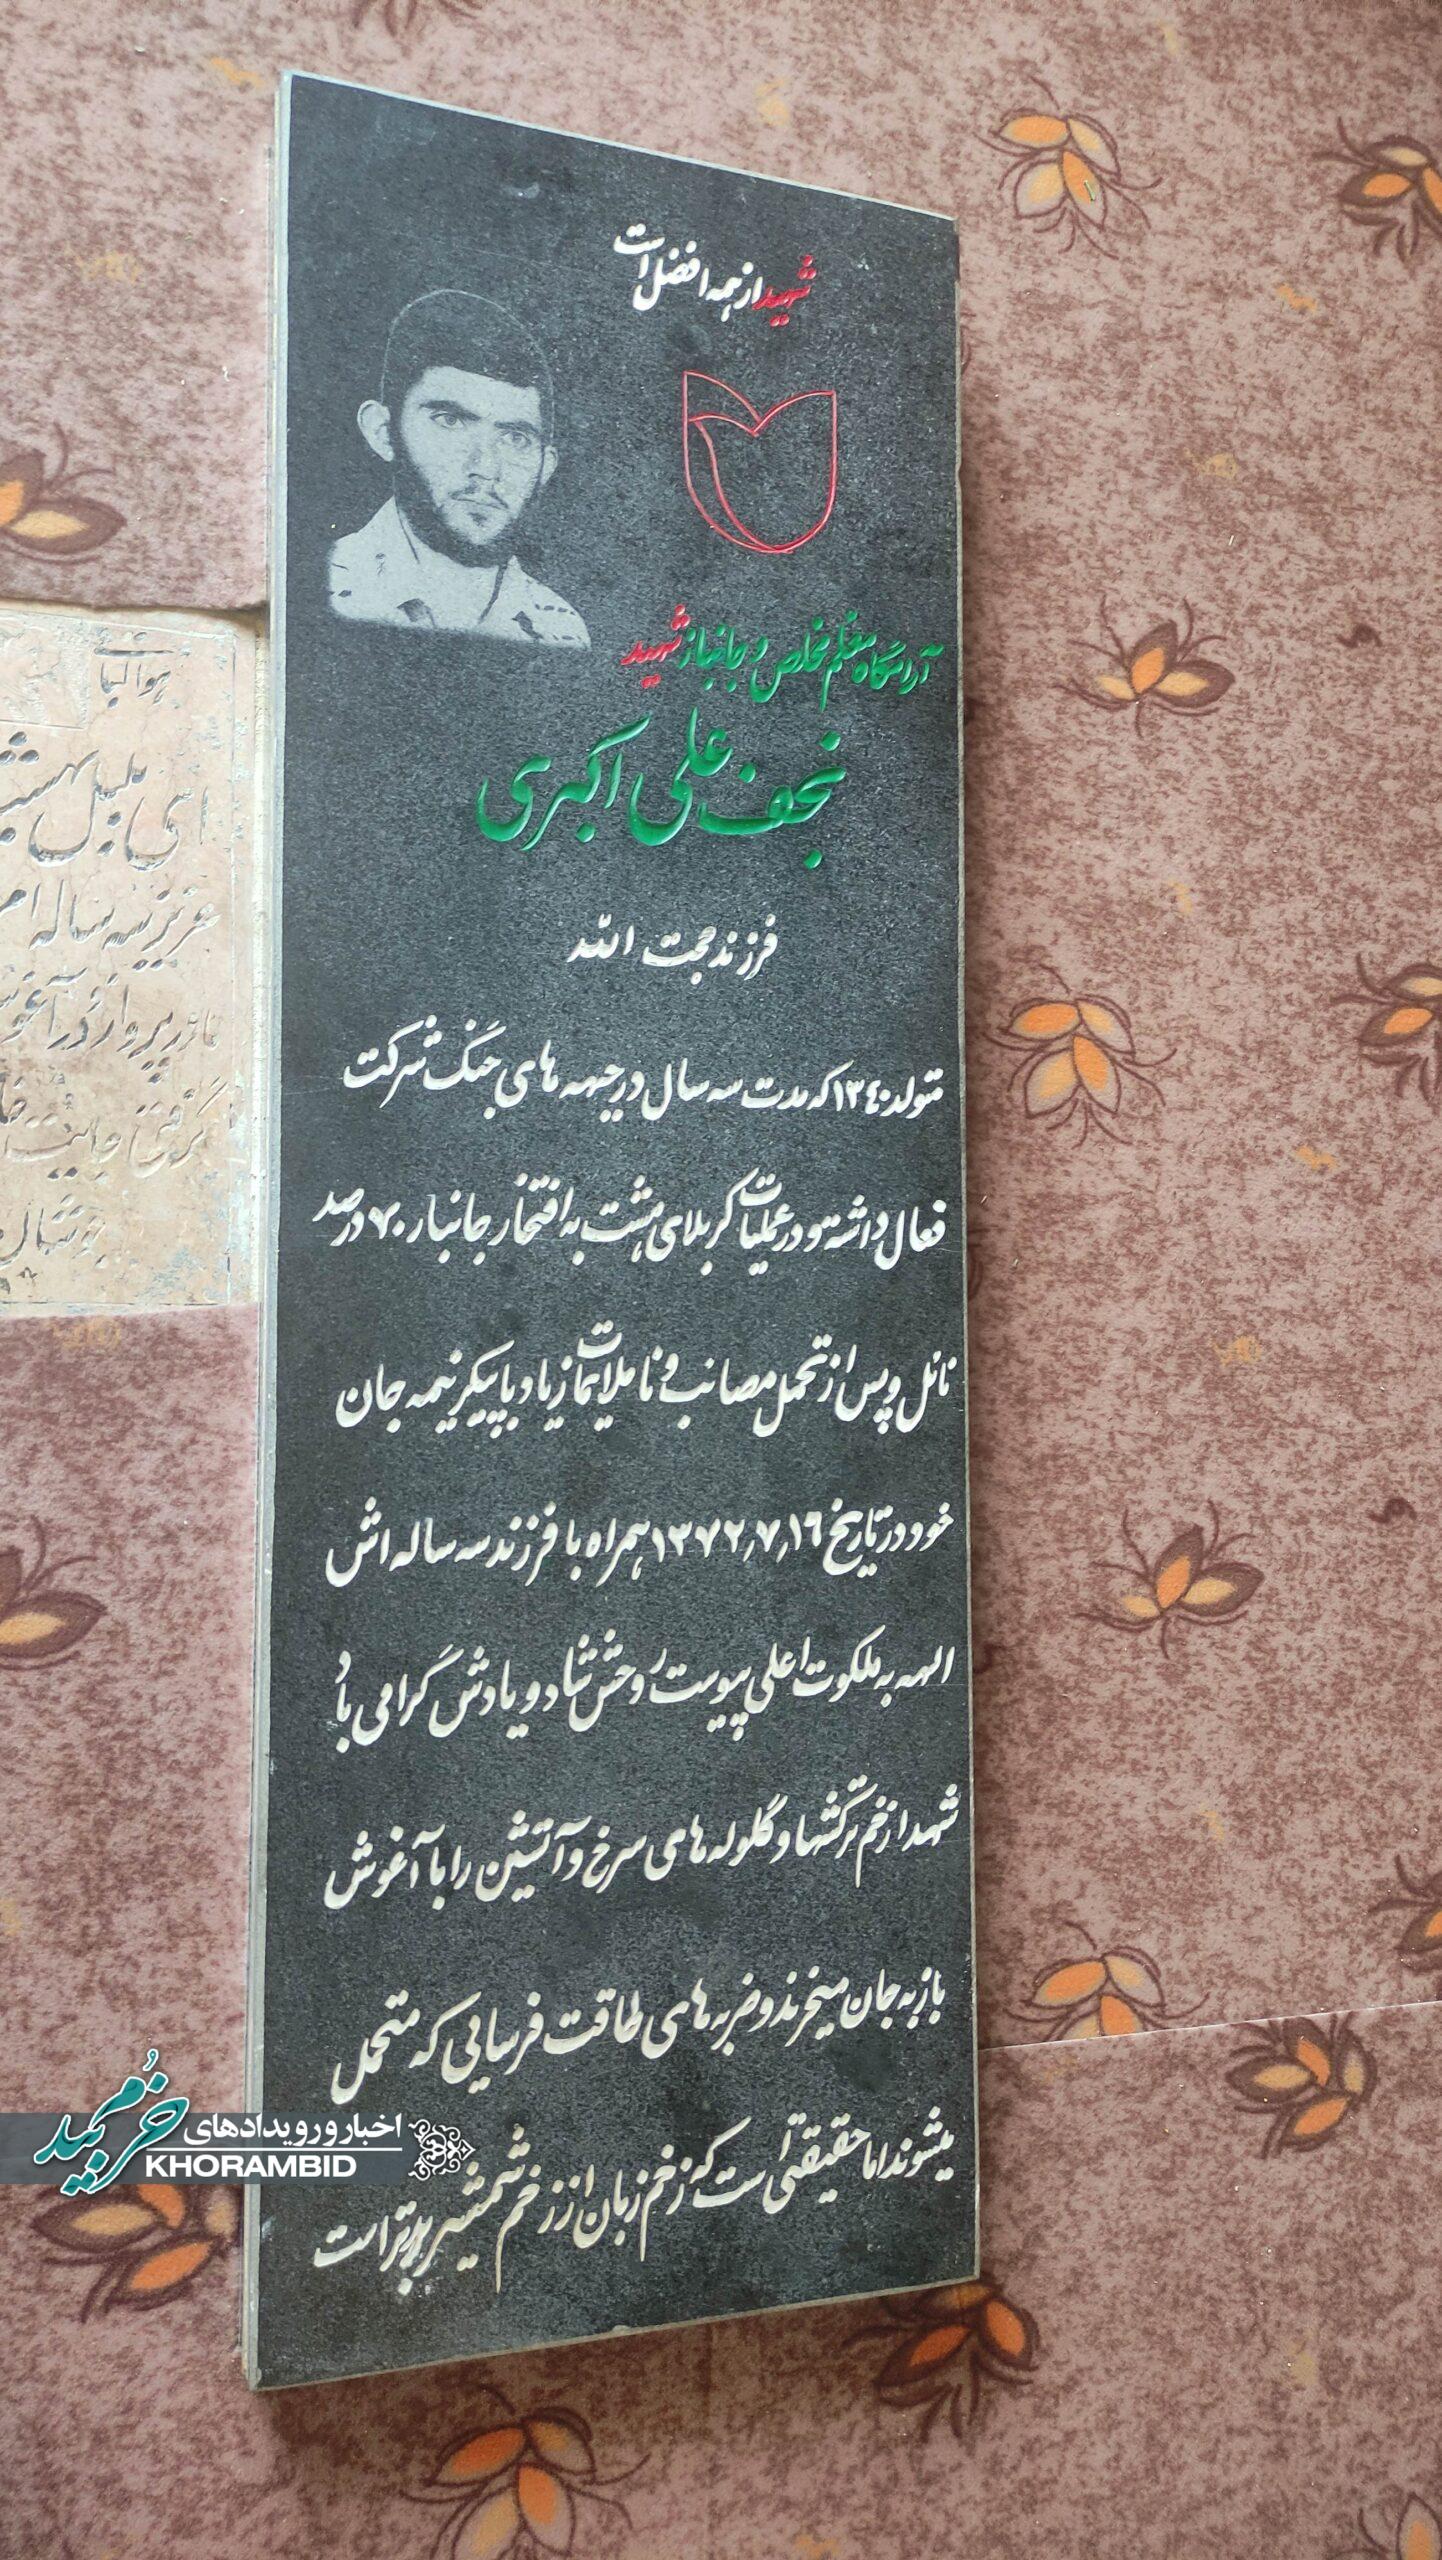 شهید از همه افضل است
آرامگاه معلم مخلص و جانباز شهید
نجف علی اکبری
فرزند حجت الله
متولد ۱۳۴۰ که مدت سه سال در جبهه های جنگ شرکت
فعال داشته و در عملیات کربلای هشت به افتخار جانباز ۷۰ درصد
نائل و پس از تحمل مصائب و ناملایمات زیاد با پیکر نیمه جان
خود در تاریخ ۱۳۷۲٫۷٫۱۶ همراه با فرزند سه ساله اش
الهه به ملکوت اعلی پیوست روحش شاد و یادش گرامی باد
شهدا زخم ترکشها و گلوله های سرخ و آتشین را با آغوش
باز به جان میخرند و ضربه های طاقت فرسایی که متحمل
میشوند اما حقیقتی است که زخم زبان از زخم شمشیر بدتر است
ای بلبل
عزیز سه ساله ام
پرواز در آغوش
گرفتی
اخبار و رویدادهای
خرم بید
KHORAMBID